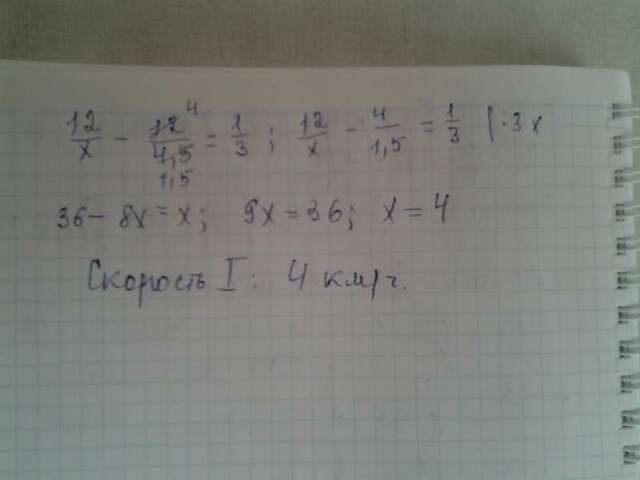 12/x - 12⁴/4,5 1,5 = 1/3 ; 12/x - 4/1,5 = 1/3 |·3x
36 - 8x = x; 9x = 36; x = 4
Скорость I: 4 км/ч.